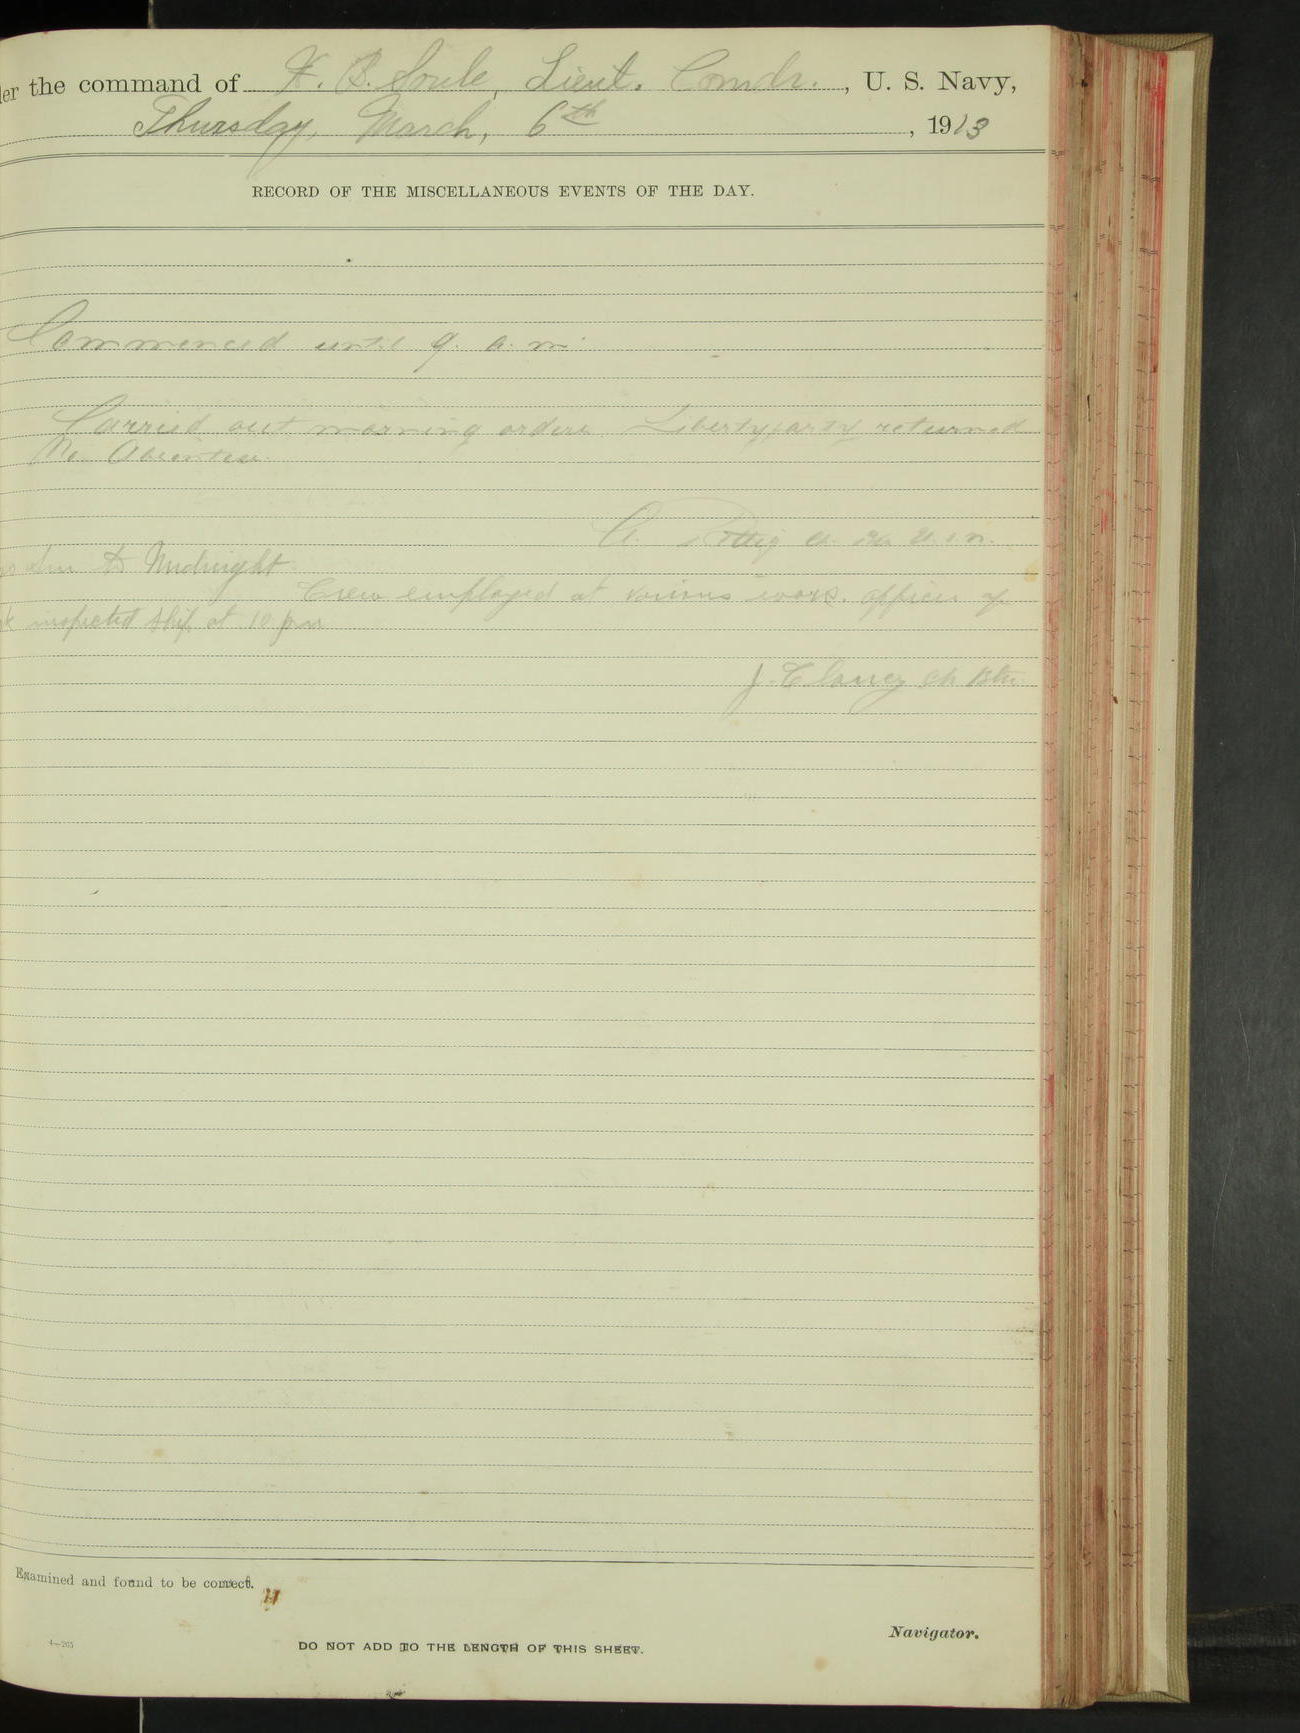 der the command of F. B. Soule, Lieut. Comdr., U. S. Navy,
Thursday, March, 6th, 1913
RECORD OF THE MISCELLANEOUS EVENTS OF THE DAY.
Commenced until 9. a. m.
Carried out morning orders. Liberty party returned
No Absentees.
to Midnight
Crew employed at various work. Officer of
inspected ship at 10 pm
J. Clancy Ch Btn.
Examined and found to be correct.
4—205
DO NOT ADD TO THE LENGTH OF THIS SHEET.
Navigator.